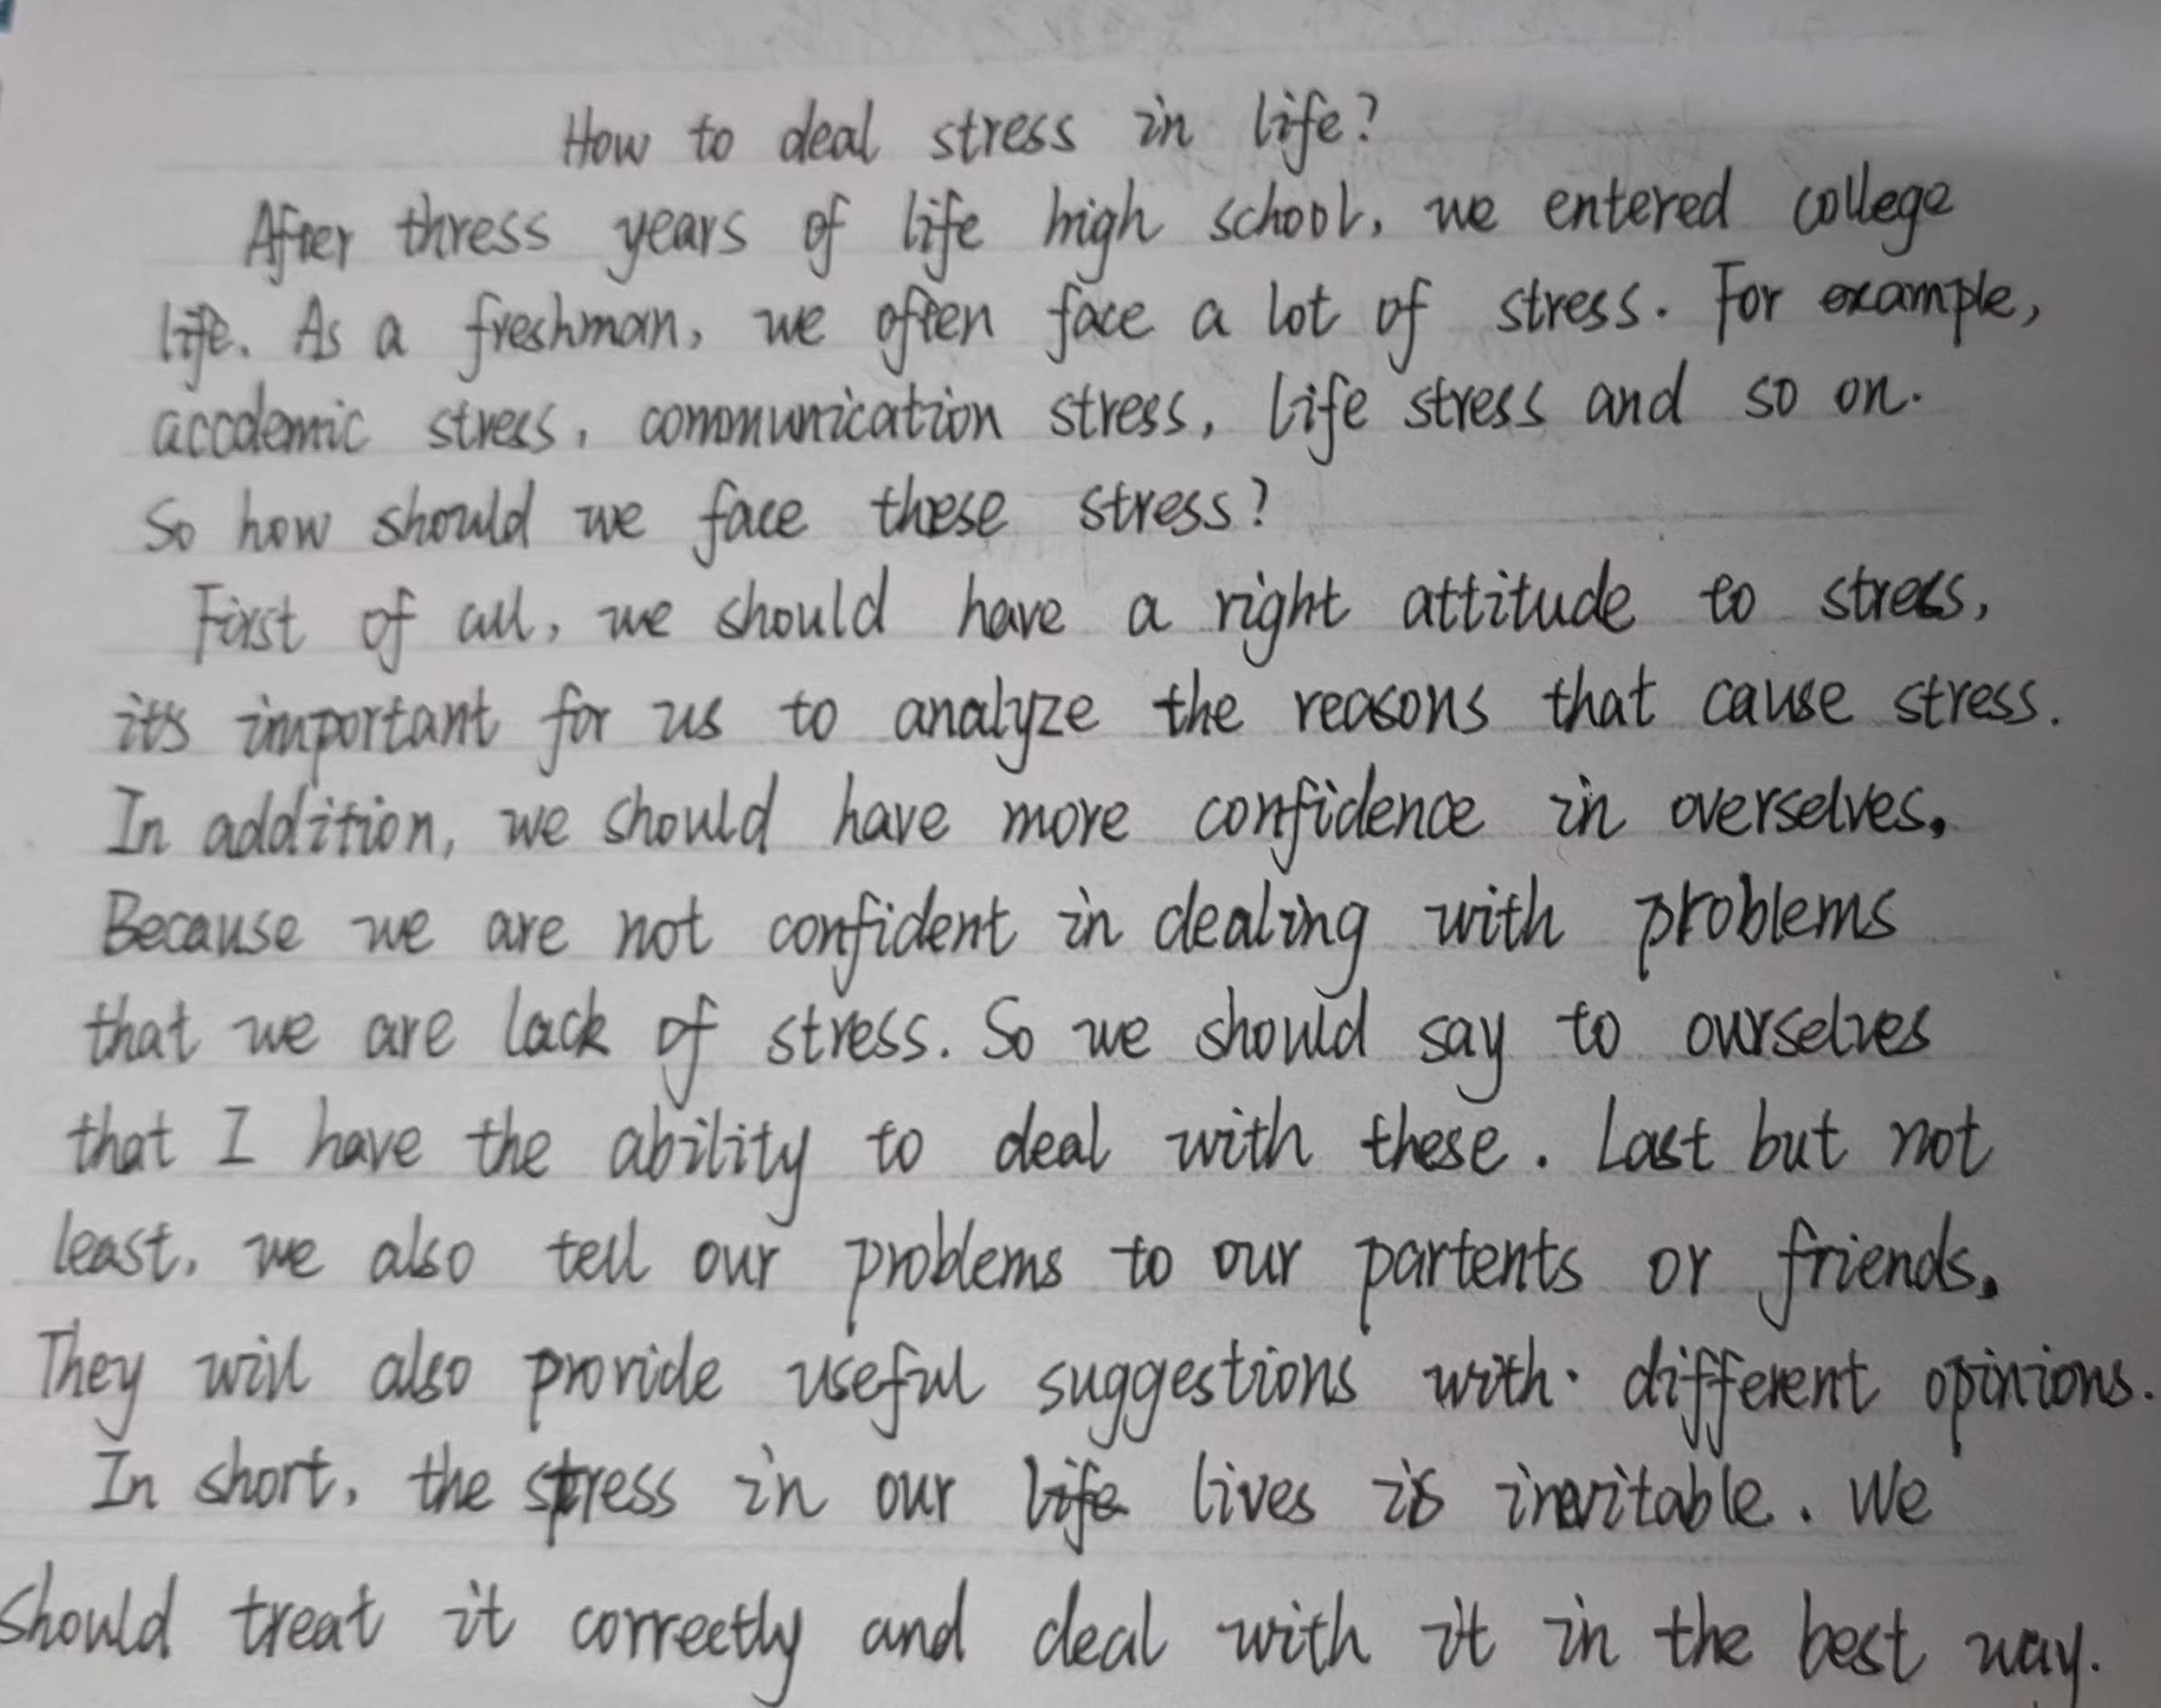 How to deal stress in life?
After thress years of life high school, we entered college
life. As a freshman, we often face a lot of stress. For example,
accdemic stress, communication stress, life stress and so on.
So how should we face these stress?
First of all, we should have a right attitude to stress,
it's important for us to analyze the reasons that cause stress.
In addition, we should have more confidence in overselves.
Because we are not confident in dealing with problems
that we are lack of stress. So we should say to ourselves
that I have the ability to deal with these. Last but not
least, we also tell our problems to our partents or friends.
They will also provide useful suggestions with different opinions.
In short, the stress in our life lives is inevitable. We
should treat it correctly and deal with it in the best way.